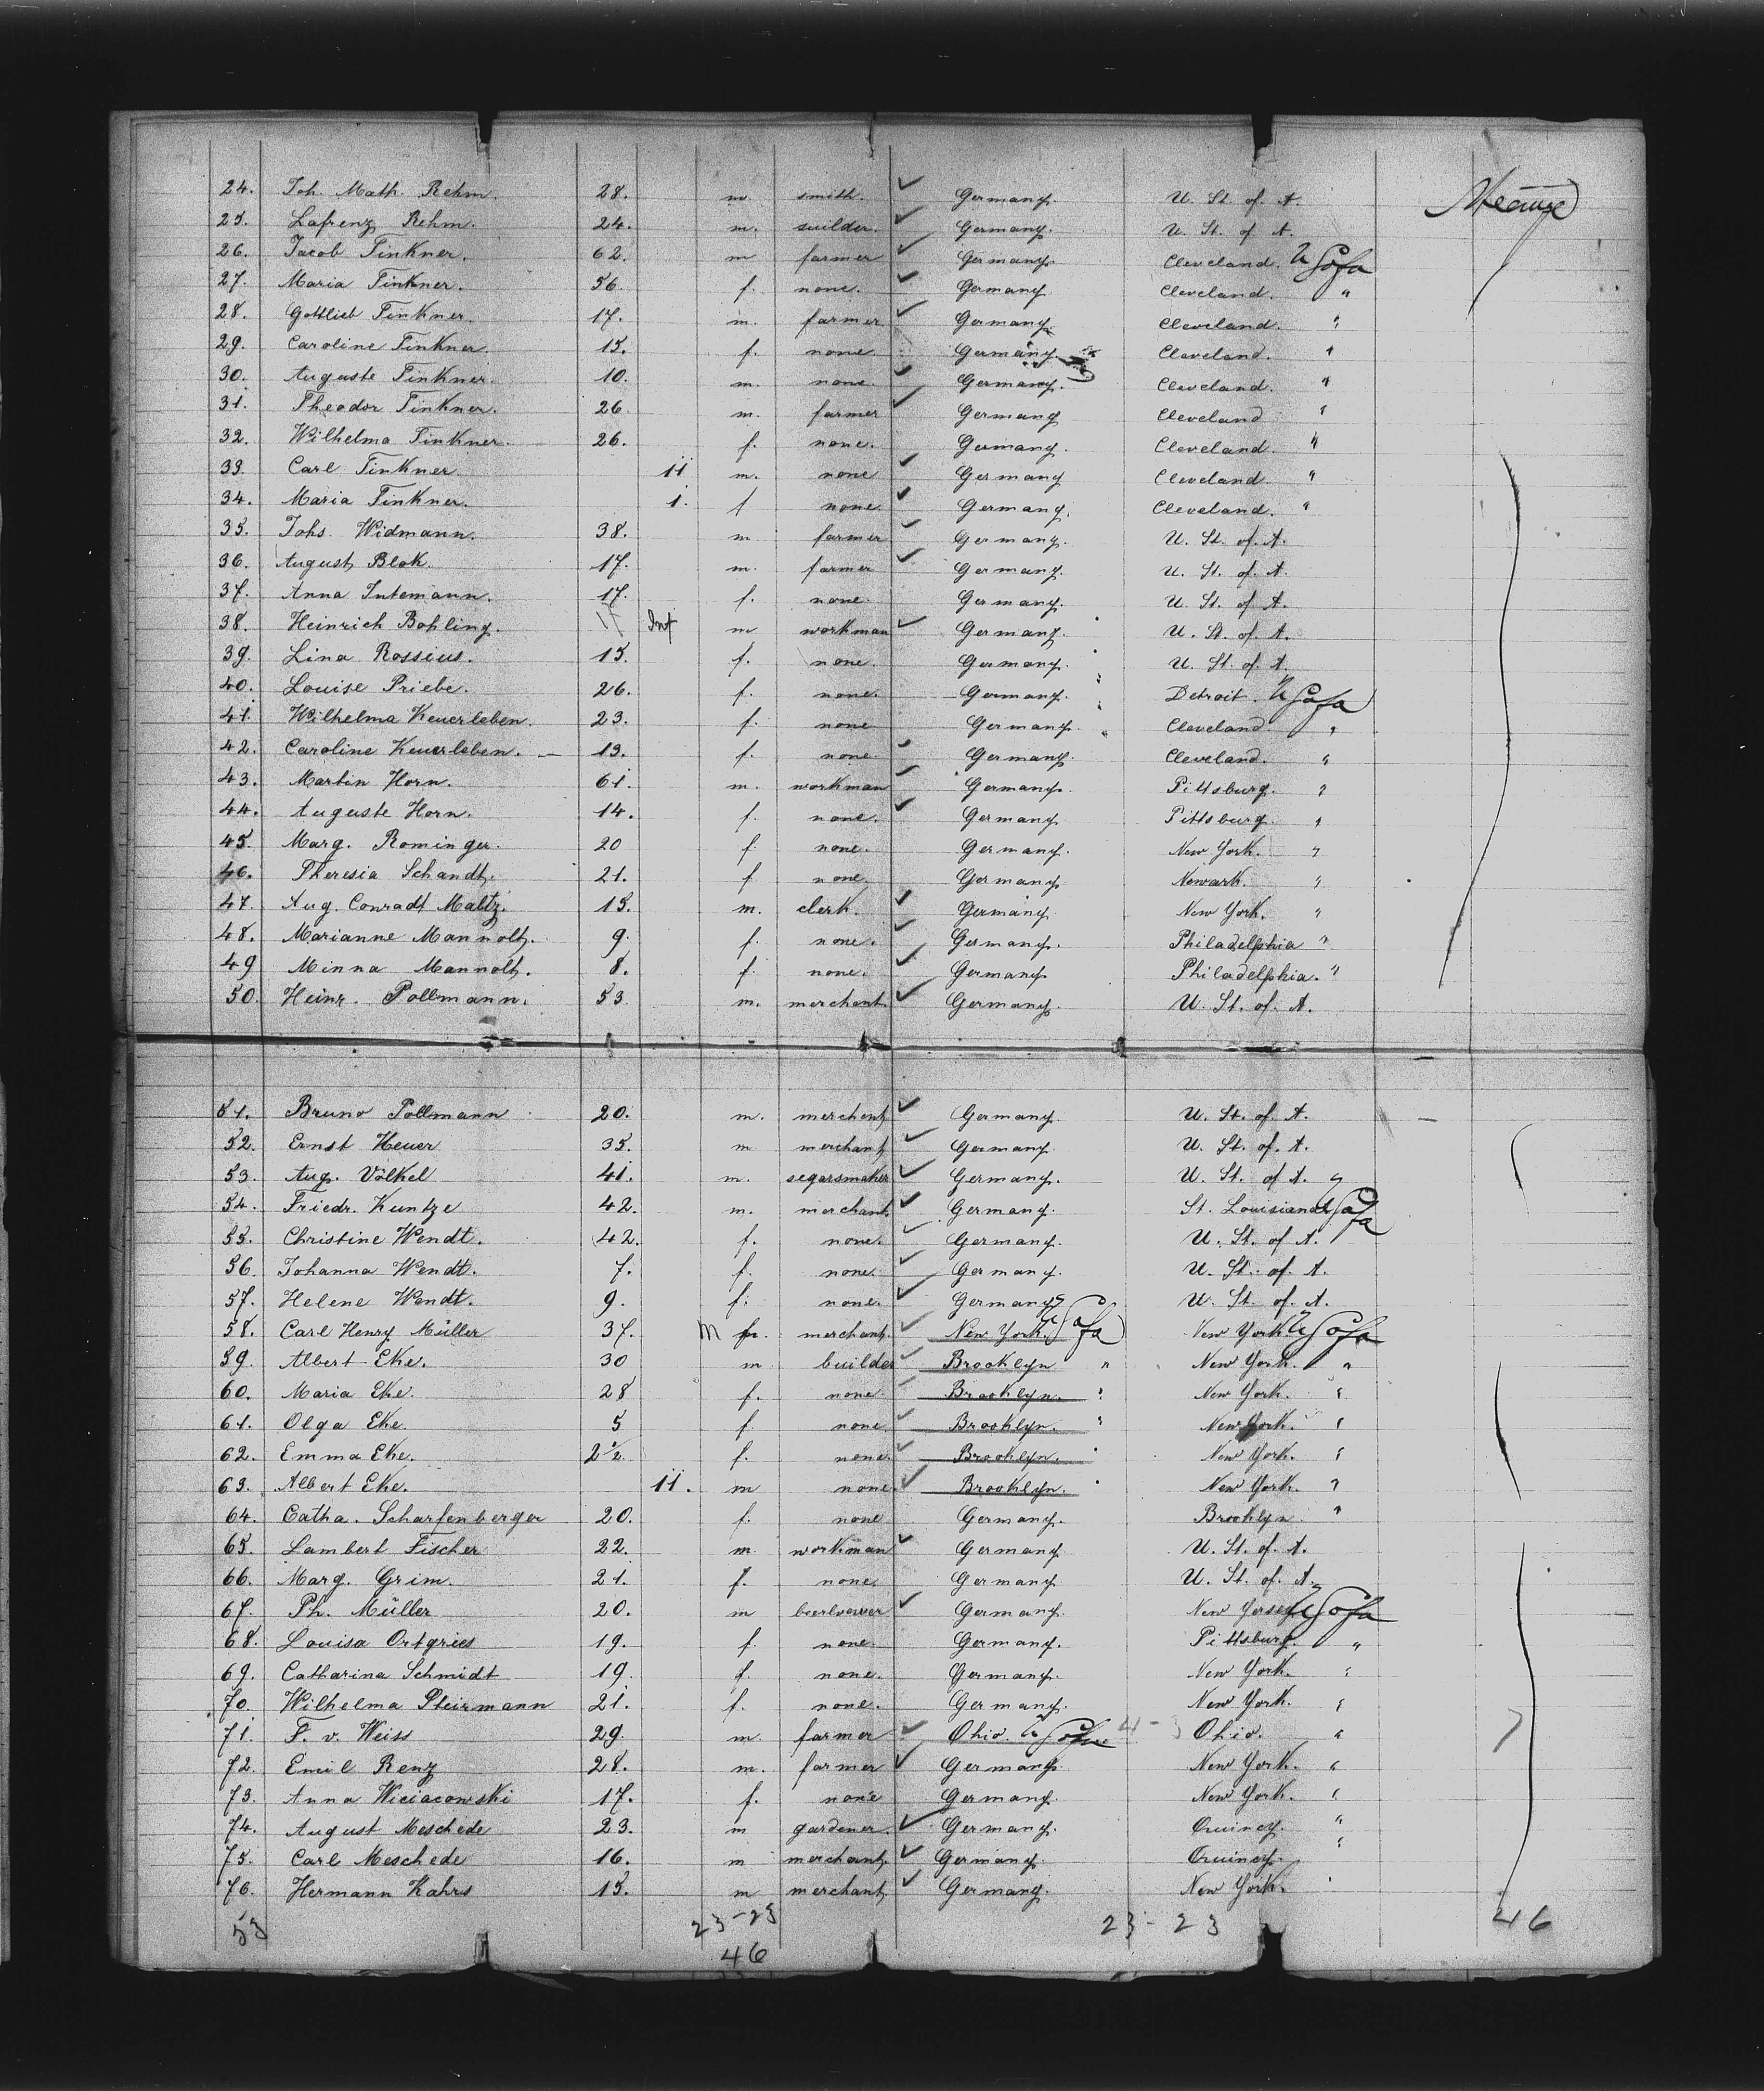 24. Joh. Math. Rehm. 28. m. smith. Germany. U. St. of. A. Steerage
25. Lafrenz Rehm. 24. m. suilder. Germany. U. St. of A.
26. Jacob Tinkner. 62. m farmer Germany. Cleveland. U S of a
27. Maria Tinkner. 56. f. none. Germany Cleveland. "
28. Gottlieb Tinkner. 17. m. farmer. Germany. Cleveland. "
29. Caroline Tinkner. 15. f. none Germany Cleveland. "
30. Auguste Tinkner. 10. m. none. Germany. Cleveland. "
31. Theodor Tinkner. 26. m. farmer Germany Cleveland "
32. Wilhelma Tinkner. 26. f. none. Germany. Cleveland. "
33. Carl Tinkner 11 m. none Germany Cleveland. "
34. Maria Tinkner. 1. f none Germany. Cleveland. "
35. Johs. Widmann. 38. m. farmer Germany. U. St. of. A.
36. August Blok. 17. m. farmer Germany. U. St. of. A.
37. Anna Intemann. 17. f. none. Germany. U. St. of A.
38. Heinrich Bohling. Inf m workman Germany. U. St. of A.
39. Lina Rossius. 15. f. none. Germany. U. St. of. A.
40. Louise Priebe. 26. f. none. Germany. Detroit. U S of a
41. Wilhelma Keuerleben. 23. f. none Germany. Cleveland "
42. Caroline Keuerleben. — 13. f. none. Germany. Cleveland. "
43. Martin Horn. 61. m. workman Germany. Pittsburg. "
44. Auguste Horn. 14. f. none. Germany Pittsburg. "
45. Marg. Rominger. 20 f. none. Germany. New York. "
46. Theresia Schandt. 21. f none. Germany Newark. "
47. Aug. Conradt Maltz. 15. m. clerk. Germany New York. "
48. Marianne Mannolt. 9. f. none. Germany. Philadelphia "
49 Minna Mannolt. 8. f. none. Germany Philadelphia. "
50. Heinr. Pollmann. 53. m. merchant. Germany. U. St. of. A.
51. Bruno Pollmann 20. m. merchant Germany. U. St. of. A.
52. Ernst Heuer 35. m merchant Germany. U. St. of. A.
53. Aug. Völkel 41. m. segarsmaker Germany. U. St. of A.
54. Friedr. Kuntze 42. m. merchant. Germany. St. Louisiana U S of a
55. Christine Wendt. 42. f. none. Germany. U. St. of A.
56. Johanna Wendt. 7. f. none. Germany. U. St. of. A.
57. Helene Wendt. 9. f. none. Germany U. St. of. A.
58. Carl Henry Müller 37. m merchant. New York. U S of a New York U S of a
59. Albert Eke. 30 m builder Brooklyn " New York. "
60. Maria Eke. 28 f. none Brooklyn. " New York. "
61. Olga Eke 5 f none. Brooklyn. " New York. "
62. Emma Eke. 2½ f. none. Brooklyn. " New York. "
63. Albert Eke. 11. m none. Brooklyn. " New York. "
64. Catha. Scharfenberger 20. f. none Germany. Brooklyn. "
65. Lambert Fischer 22. m workman Germany U. St. of. A.
66. Marg. Grim. 21. f. none. Germany U. St. of. A.
67. Ph. Müller 20. m beerbrewer Germany. New Yersey U S of a
68. Louisa Ortgries 19. f. none. Germany. Pittsburg. "
69. Catharina Schmidt 19. f. none. Germany. New York. "
70. Wilhelma Steirmann 21. f. none. Germany. New York. "
71. F. v. Weiss 29. m. farmer Ohio. U S of a 4-3 Ohio. "
72. Emil Renz 28. m. farmer Germany New York. "
73. Anna Wiciacowski 17. f. none Germany. New York. "
74. August Meschede 23. m gardener. Germany. Quincy. "
75. Carl Meschede 16. m merchant. Germany. Quincy. "
76. Hermann Kahrs 15. m merchant Germany. New York.
53 23-23 23-23 46
46